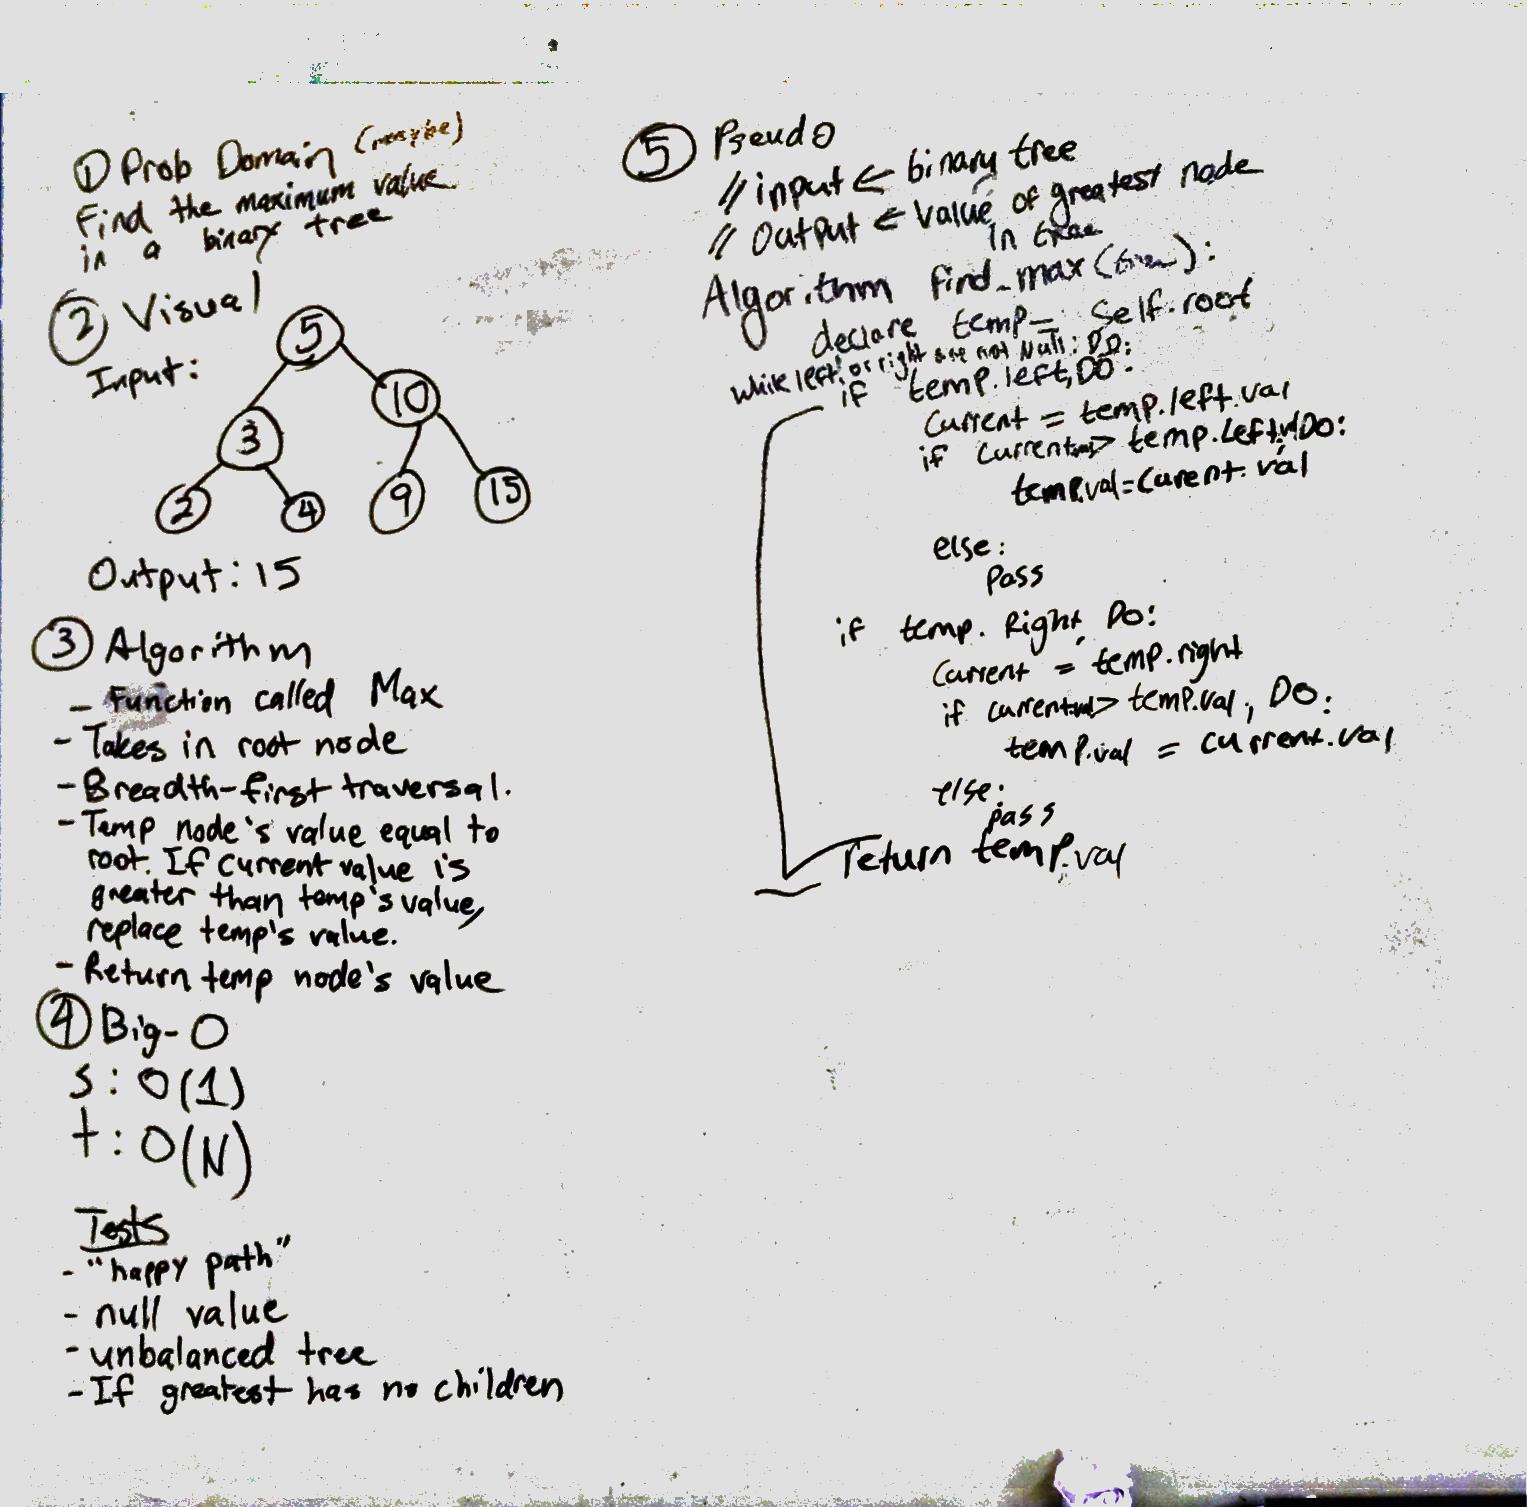 ① Prob Domain (maybe)
Find the maximum value
in a binary tree
② Visual
Input:
5
10
3
2
4
9
15
Output: 15
③ Algorithm
- Function called Max
- Takes in root node
- Breadth-first traversal.
- Temp node's value equal to
root. If current value is
greater than temp's value,
replace temp's value.
- Return temp node's value
④ Big-O
s: O(1)
t: O(N)
Tests
- "happy path"
- null value
- unbalanced tree
- If greatest has no children
⑤ Pseudo
// input ← binary tree
// Output ← value of greatest node
in tree
Algorithm find_max(tree):
declare temp = self.root
while left or right are not Null: DO:
if temp.left, DO:
Current = temp.left.val
if current.val > temp.left.val DO:
temp.val = Curent.val
else:
pass
if temp. Right, Do:
Current = temp.right
if current.val > temp.val, DO:
temp.val = current.val
else:
pass
return temp.val